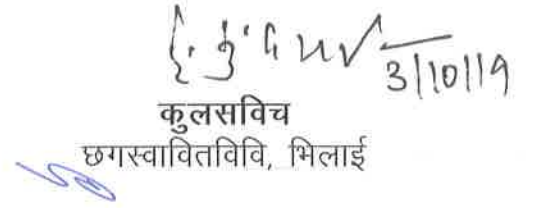 3/10/19
कुलसविच
छगस्वावितविवि, भिलाई